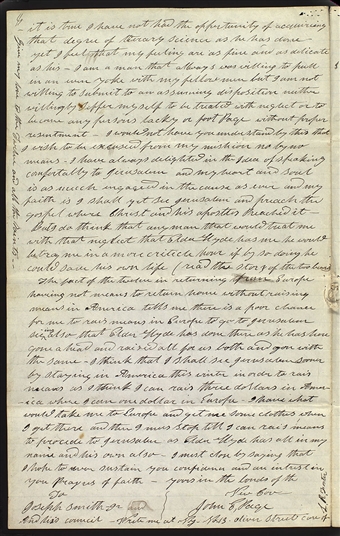 it is true I have not had the opportunity of acquireing
that degree of literary science as he has done
yet I feel that my feeling are as fine and as delicate
as his - I am a man that always was willing to pull
in an even yoke with my fellow men but I am not
willing to submit to an assuming disposition neither
willingly suffer myself to be treated with neglect or to
become any persons lacky or foot Page without proper
resentment - I would not have you understand by this that
I wish to be excused from my mission no by no
means - I have always delighted in the Idea of speaking
comfortably to Jerusalem and my heart and soul
is as much engaged in the cause as ever and my
faith is I shall yet see Jerusalem and preach the
gospel where Christ and his apostles Preached it -
But I do think that any man that would treat me
with that neglect that Elder Hyde has me he would
betray me in a more critical hour if by so doing he
could save his own life (read the story of the two bears
The fact of the twelve in returning from Europe
having not means to return home without raising
means in America tells me there is a poor chance
for me to rais means in Europe to go to Jerusalem
also that Elder Hyde has done there as he has here
gone ahead and raised all for us both and gon with
the same - I think that I shall see Jerusalem sooner
by staying in America this winter in order to rais
means as I think I can rais three dollars in Ame
rica where I can one dollar in Europe - I have what
would take me to Europe and get me some clothes when
I get there and then I must stop till I can rais means
to procede to Jerusalem as Elder Hyde has all in my
name and his own also - I must close by saying that
I hope to ever sustain you confidence and an intrest in
you Prayers of faith - yours in the bonds of the
To New Cove
Joseph Smith Jr and John E Page
And his council - Write me at No.